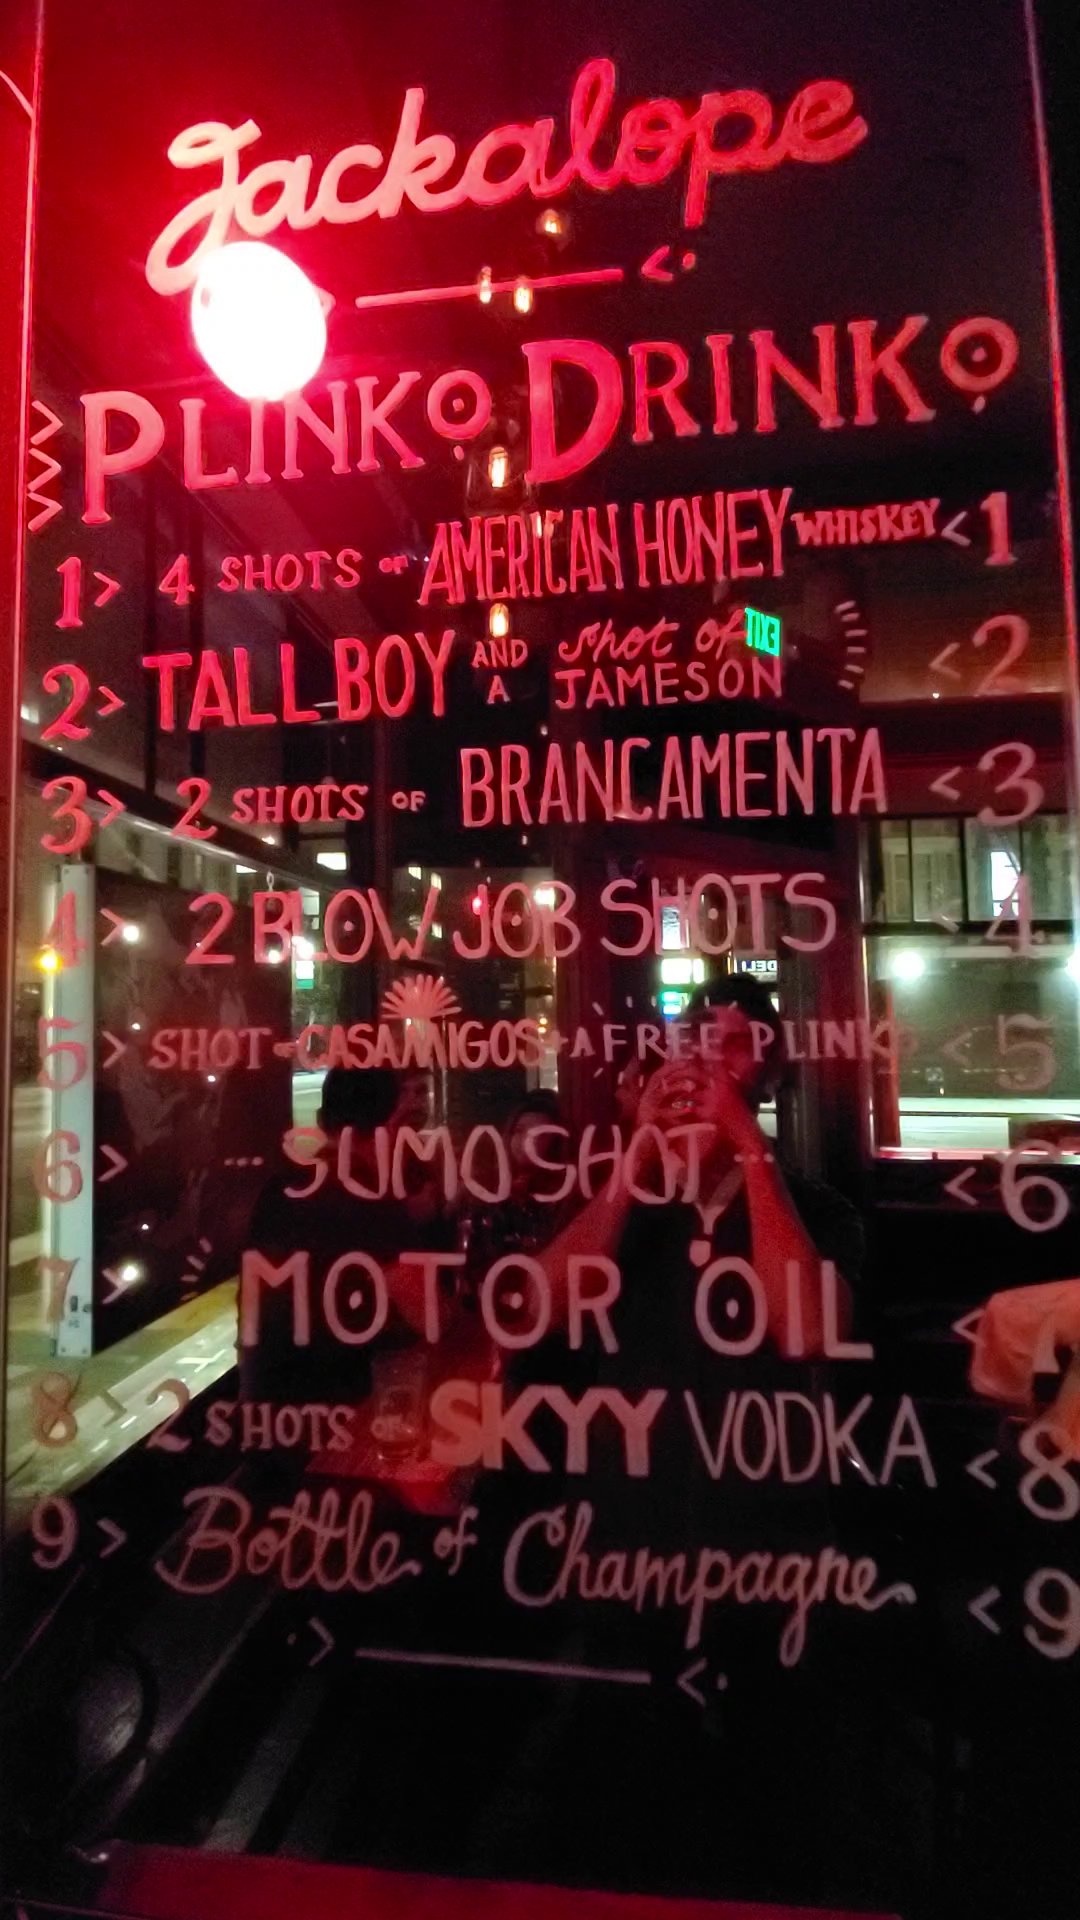 Jackalope
PLINKO DRINKO
1> 4 SHOTS OF AMERICAN HONEY WHISKEY <1
2> TALL BOY AND A Shot of JAMESON <2
EXIT
3> 2 SHOTS OF BRANCAMENTA <3
4> 2 BLOW JOB SHOTS <4
DELI
5> SHOT OF CASAMIGOS + A FREE PLINKO <5
6> ... SUMO SHOT ... <6
7> MOTOR OIL <7
8> 2 SHOTS OF SKYY VODKA <8
9> Bottle of Champagne <9